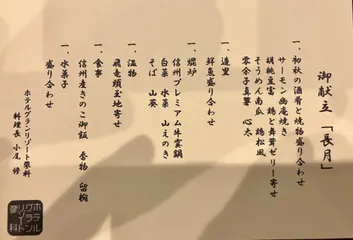 御献立「長月」
一、初秋の酒肴と焼物盛り合わせ
サーモン幽庵焼き
胡桃豆富 鶏と舞茸ゼリー寄せ
そうめん南瓜 鶏松風
零余子真薯 心太
一、造里
鮮魚盛り合わせ
一、焜炉
信州プレミアム牛雲鍋
白菜 水菜 山えのき
そば 山葵
一、温物
飛竜頭玉地寄せ
一、食事
信州産きのこ御飯 香物 留椀
一、水菓子
盛り合わせ
ホテルグランリゾート蓼科
料理長 小尾 修
ホテル
グラン
リゾート
蓼科